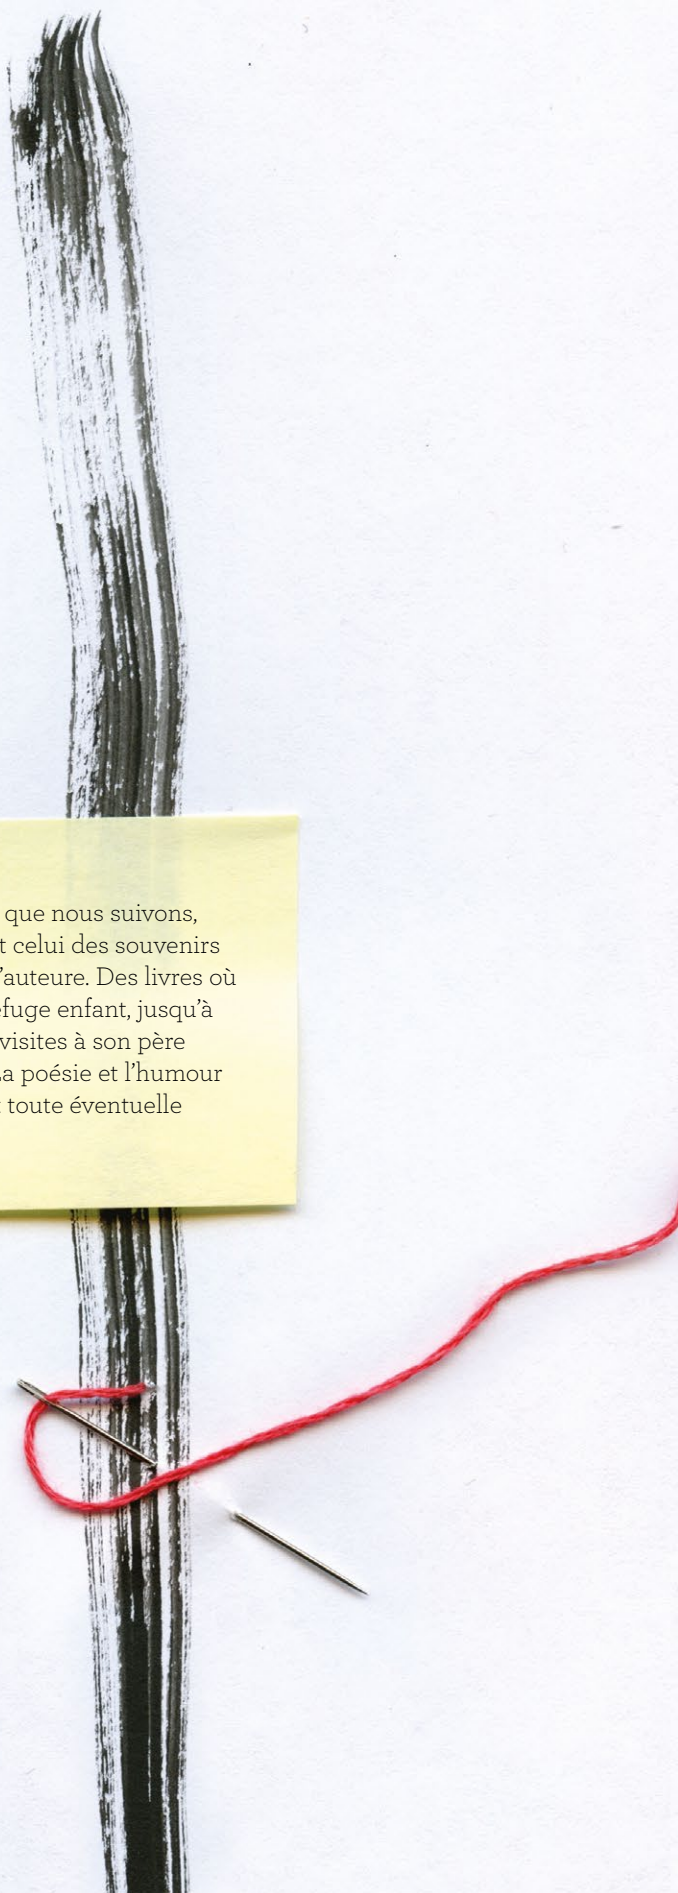 que nous suivons,
t celui des souvenirs
'auteure. Des livres où
efuge enfant, jusqu'à
visites à son père
La poésie et l'humour
t toute éventuelle